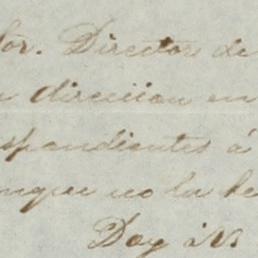 Sor. Director de
direccion en
spondientes á
nque no la he
Doy á V.